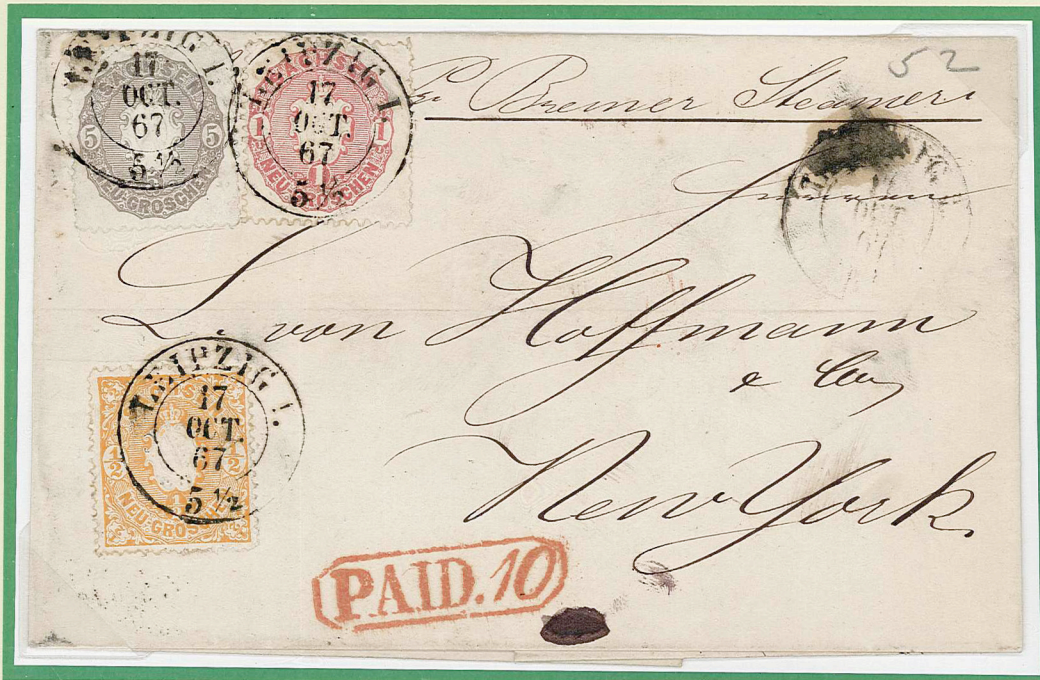 LEIPZIG I.
17
OCT.
67
5 1/2
SACHSEN
5 5
NEU-GROSCHEN
LEIPZIG I.
17
OCT.
67
5 1/2
SACHSEN
1 1
1
NEU-GROSCHEN
52
Pr Bremer Steamer
OCT
L. von Hoffmann
& Coy
New York
LEIPZIG I.
17
OCT.
67
5 1/2
1/2 1/2
NEU-GROSCHEN
PAID.10